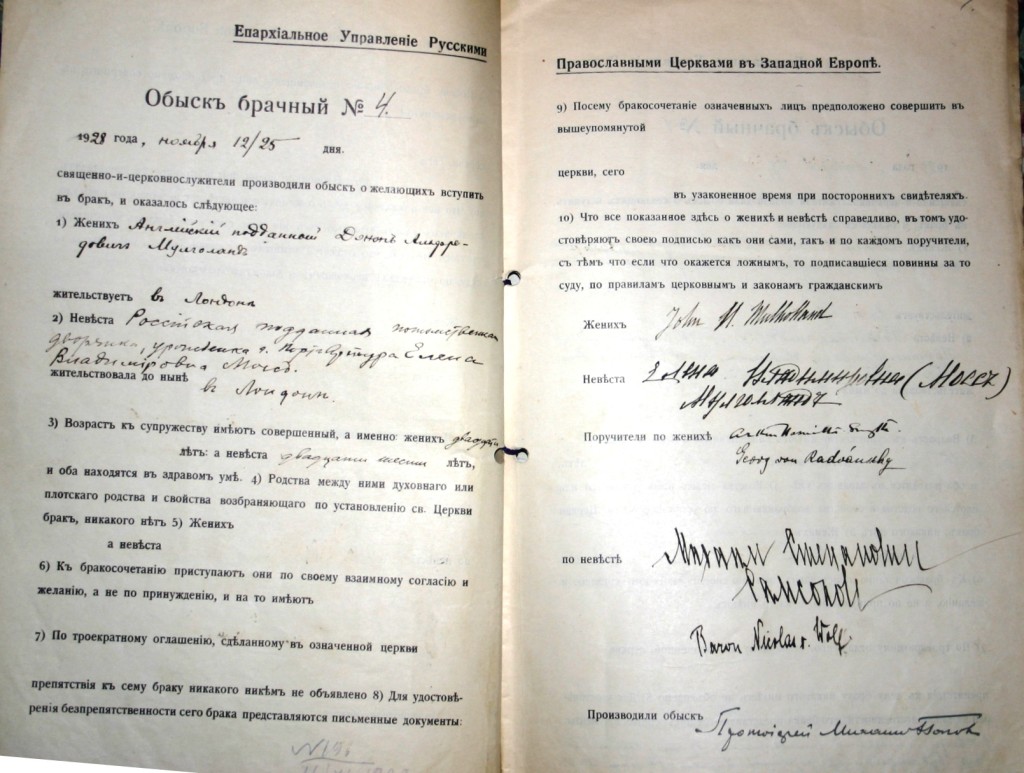 Епархіальное Управленіе Русскими
Обыскъ брачный № 4.
1928 года, ноября 12/25 дня.
священно-и-церковнослужители производили обыскъ о желающихъ вступить
въ бракъ, и оказалось слѣдующее:
1) Женихъ Англійскій подданный Джонъ
жительствуетъ въ Лондонѣ
2) Невѣста Россійская подданная потомственная
дворянка, уроженка г. Портъ-Артура Елена
Владиміровна Моссъ.
жительствовала до нынѣ
въ Лондонѣ.
3) Возрастъ къ супружеству имѣютъ совершенный, а именно: женихъ
лѣтъ: а невѣста двадцати шести лѣтъ,
и оба находятся въ здравомъ умѣ. 4) Родства между ними духовнаго или
плотскаго родства и свойства возбраняющаго по установленію св. Церкви
бракъ, никакого нѣтъ 5) Женихъ
а невѣста
6) Къ бракосочетанію приступаютъ они по своему взаимному согласію и
желанію, а не по принужденію, и на то имѣютъ
7) По троекратному оглашенію, сдѣланному въ означенной церкви
препятствія къ сему браку никакого никѣмъ не объявлено 8) Для удостовѣ-
ренія безпрепятственности сего брака представляются письменные документы:
Православными Церквами въ Западной Европѣ.
9) Посему бракосочетаніе означенныхъ лицъ предположено совершить въ
вышеупомянутой
церкви, сего
въ узаконенное время при постороннихъ свидѣтеляхъ.
10) Что все показанное здѣсь о женихѣ и невѣстѣ справедливо, въ томъ удо-
стовѣряютъ своею подписью какъ они сами, такъ и по каждомъ поручители,
съ тѣмъ что если что окажется ложнымъ, то подписавшіеся повинны за то
суду, по правиламъ церковнымъ и законамъ гражданскимъ
Женихъ John H. Mulholland
Невѣста Елена Владиміровна (Моссъ)
Мулголландъ
Поручители по женихѣ
Georg von Radvánsky
по невѣстѣ Михаилъ Степановичъ
Baron Nicolas v. Wolf.
Производили обыскъ Протоіерей Михаилъ